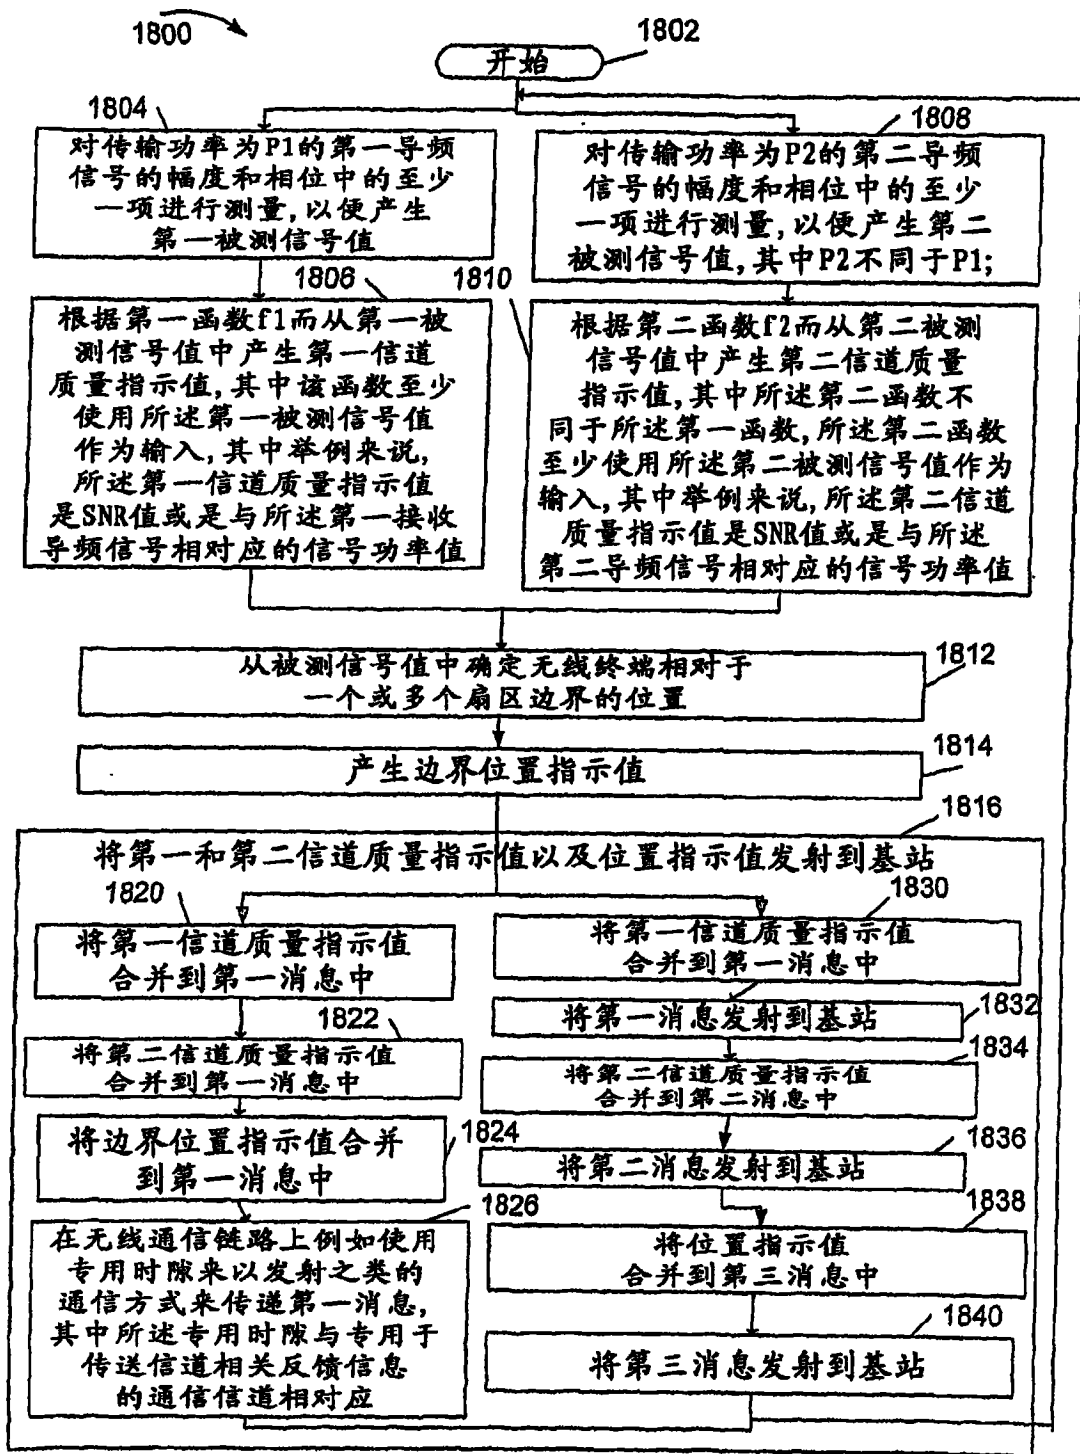 1800
1802
开始
1804
对传输功率为P1的第一导频
信号的幅度和相位中的至少
一项进行测量,以便产生
第一被测信号值
1808
对传输功率为P2的第二导频
信号的幅度和相位中的至少
一项进行测量,以便产生第二
被测信号值,其中P2不同于P1;
1806
根据第一函数f1而从第一被
测信号值中产生第一信道
质量指示值,其中该函数至少
使用所述第一被测信号值
作为输入,其中举例来说,
所述第一信道质量指示值
是SNR值或是与所述第一接收
导频信号相对应的信号功率值
1810
根据第二函数f2而从第二被测
信号值中产生第二信道质量
指示值,其中所述第二函数不
同于所述第一函数,所述第二函数
至少使用所述第二被测信号值作为
输入,其中举例来说,所述第二信道
质量指示值是SNR值或是与所述
第二导频信号相对应的信号功率值
从被测信号值中确定无线终端相对于
一个或多个扇区边界的位置
1812
产生边界位置指示值
1814
1816
将第一和第二信道质量指示值以及位置指示值发射到基站
1820
将第一信道质量指示值
合并到第一消息中
1822
将第二信道质量指示值
合并到第一消息中
将边界位置指示值合并
到第一消息中
1824
1826
在无线通信链路上例如使用
专用时隙来以发射之类的
通信方式来传递第一消息,
其中所述专用时隙与专用于
传送信道相关反馈信息
的通信信道相对应
1830
将第一信道质量指示值
合并到第一消息中
将第一消息发射到基站
1832
1834
将第二信道质量指示值
合并到第二消息中
1836
将第二消息发射到基站
1838
将位置指示值
合并到第三消息中
1840
将第三消息发射到基站